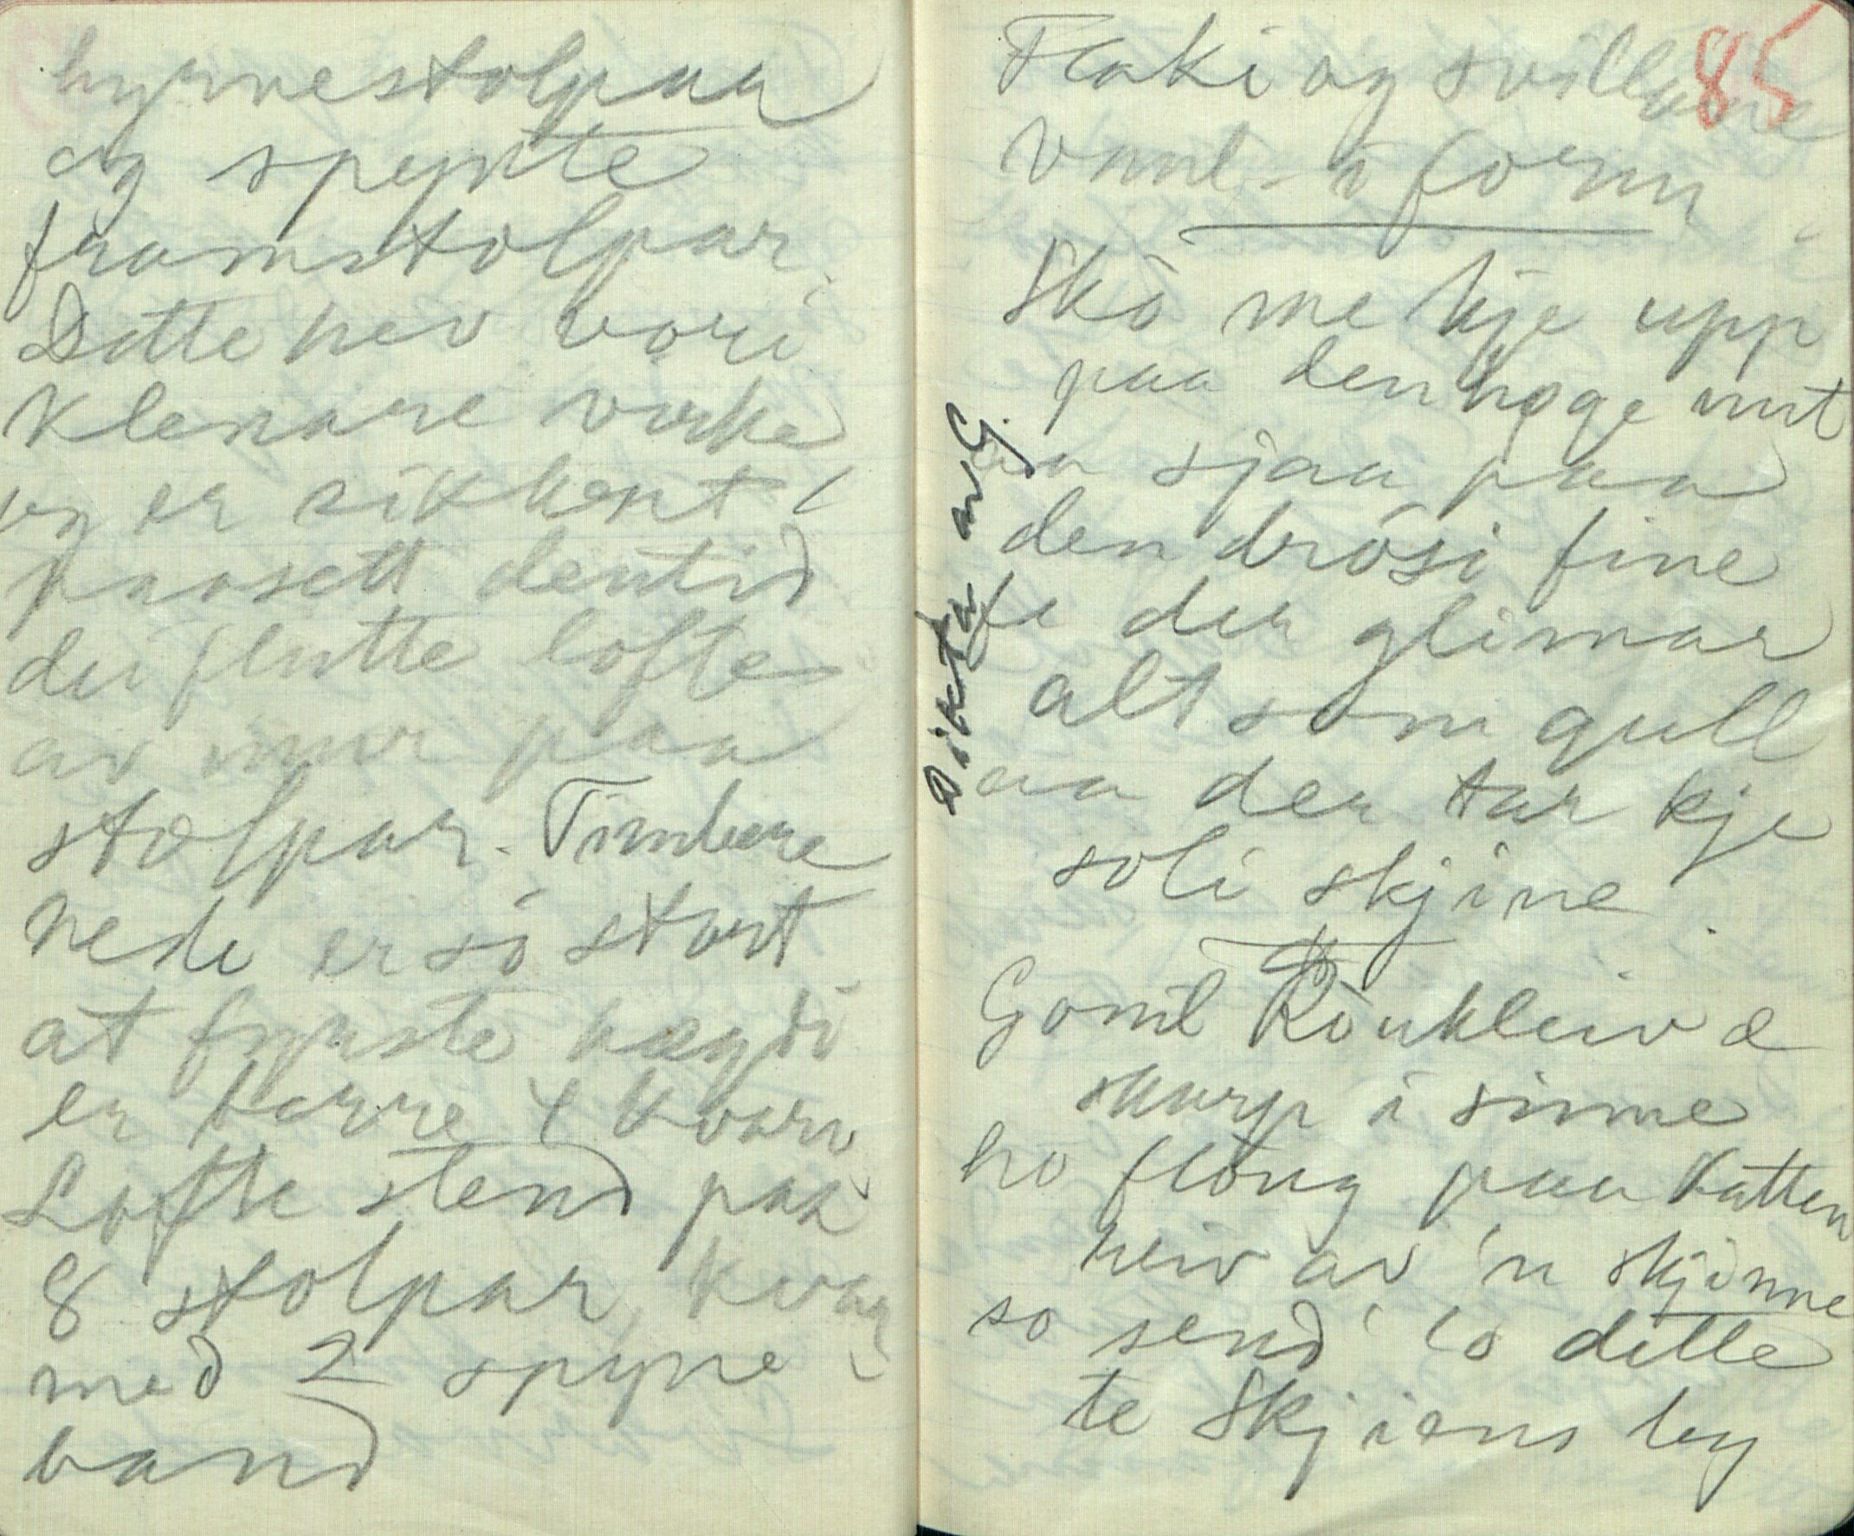 hyrnestolpaa
og spente
framstolpar.
Dette hev vori
klenare virke
og er sikkert
paasett dentid
dei flutte lofte
av mur paa
stolpar. Timbere
nede er só stort
at fyrste høgdi
er berre 4 kvarv
Lofte stend paa
8 stolpar, kvar
med 2 spyne
band
85
Flaki og svillane
vanl. i form
Skò me kje upp
paa den høge nut
aa sjaa paa
den drósi fine
fe der glimar
alt som gull
aa der tar kje
soli skjine.
Dikta av G.
Gomil Rònkleiv æ
skarp i sinne
ho flòug paa katten
reiv av 'n skjinne
so send' 'o dette
te Skjiens by